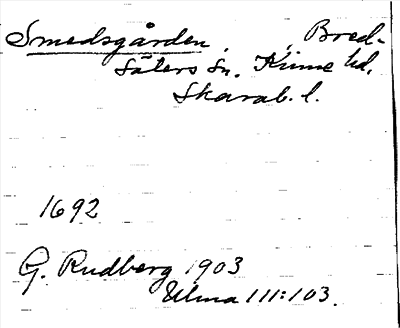 Smedsgården, Bred-
säters sn. Kinne hd.
Skarab. l.
1692
G. Rudberg 1903
Ulma 111:103.